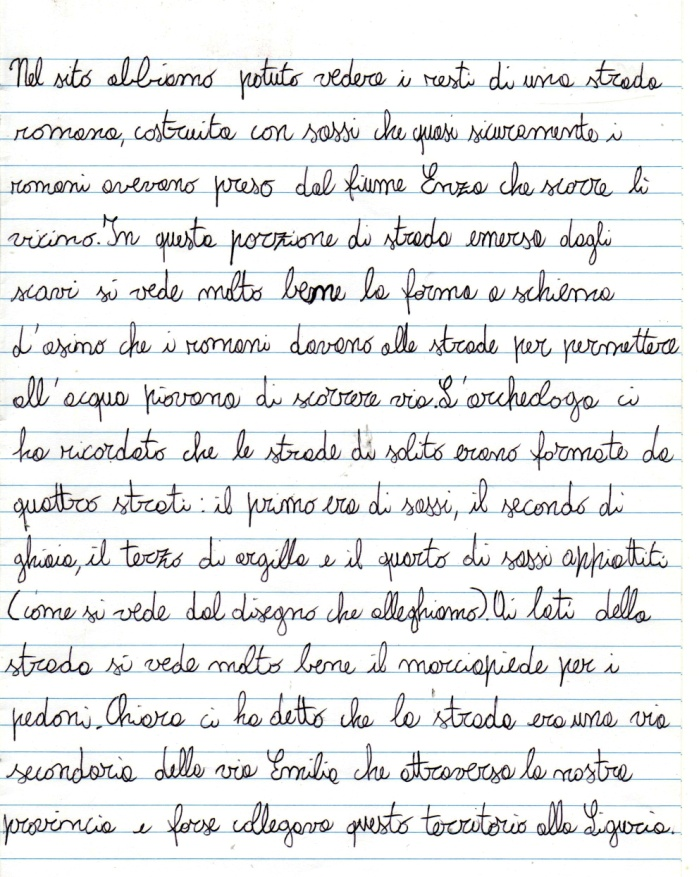 Nel sito abbiamo potuto vedere i resti di una strada
romana, costruita con sassi che quasi sicuramente i
romani avevano preso dal fiume Enza che scorre lì
vicino. In questa porzione di strada emersa dagli
scavi si vede molto bene la forma a schiena
d'asino che i romani davano alle strade per permettere
all'acqua piovana di scorrere via. L'archeologa ci
ha ricordato che le strade di solito erano formate da
quattro strati: il primo era di sassi, il secondo di
ghiaia, il terzo di argilla e il quarto di sassi appiattiti
(come si vede dal disegno che alleghiamo). Ai lati della
strada si vede molto bene il marciapiede per i
pedoni. Chiara ci ha detto che la strada era una via
secondaria della via Emilia che attraversa la nostra
provincia e forse collegava questo territorio alla Liguria.